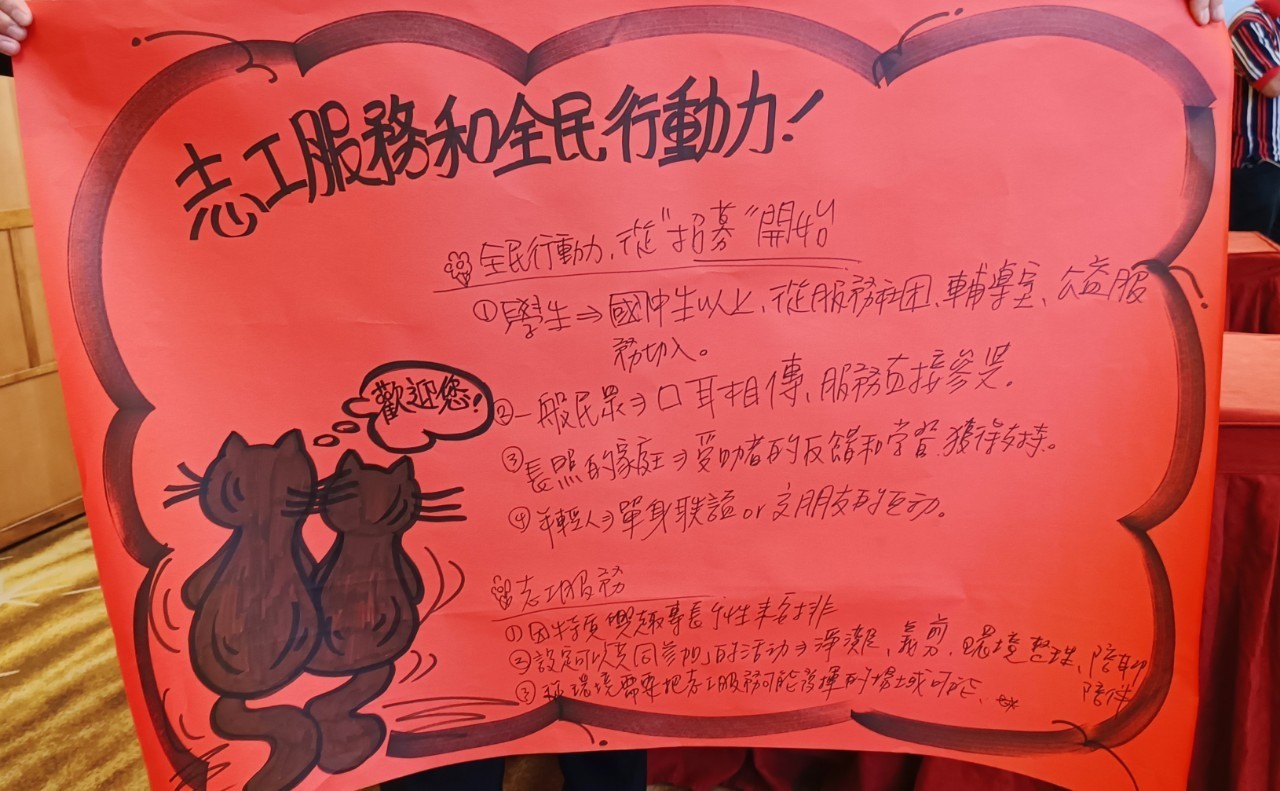 志工服務和全民行動力！
全民行動力，從"招募"開始
①學生⇒國中生以上，從服務社团、輔導室、公益服
務切入。
②一般民眾⇒口耳相傳、服務直接參與。
歡迎您！
③長照的家庭⇒受助者的反饋和学習，獲得支持。
④年輕人⇒單身联誼or交朋友的活动。
志工服務
①因特質興趣專長个性來安排
②設定可以共同参加的活动⇒淨灘、義剪、環境整理、陪聊
陪伴
③環境需要把志工服務可能發揮的場域或可能、